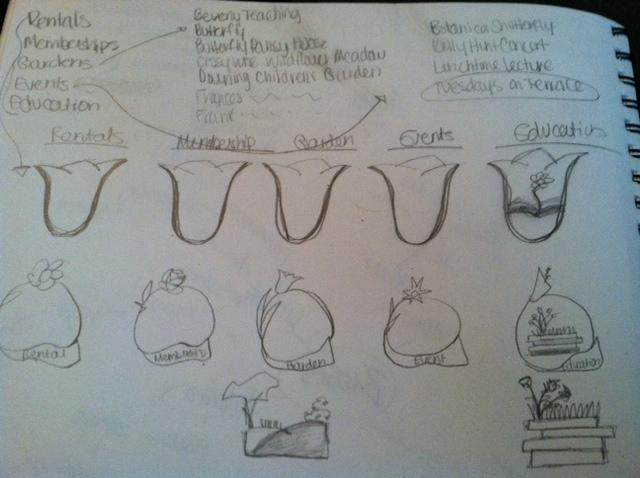 Rentals
Memberships
Gardens
Events
Education
Beverly Teaching
Butterfly
Butterfly Pansy House
Wildflower Meadow
Downing Childrens Garden
Frances
Frank
Botanica Shutterfly
Kelly Hunt Concert
Lunchtime lecture
Tuesdays on Terrace
Rentals
Membership
Garden
Events
Education
Rental
Membership
Garden
Event
Education